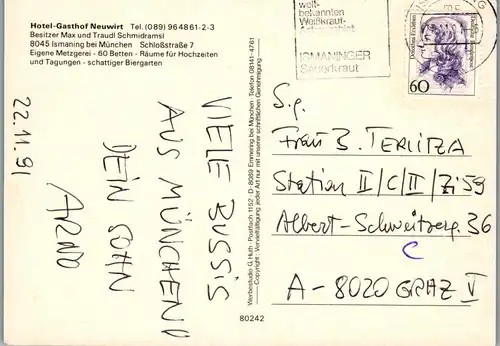 Hotel-Gasthof Neuwirt Tel. (089) 964861-2-3
Besitzer Max und Traudl Schmidramsl
8045 Ismaning bei München Schloßstraße 7
Eigene Metzgerei - 60 Betten - Räume für Hochzeiten
und Tagungen - schattiger Biergarten
22.11.91
VIELE BUSSIS
AUS MÜNCHEN!
DEIN SOHN
ARNO
Werbestudio G. Huth · Postfach 1152 · D 8089 Emmering bei München Telefon 08141-4761
Copyright: Vervielfältigung jeder Art nur mit unserer schriftlichen Genehmigung
80242
welt-
bekannten
Weißkraut-
ISMANINGER
Sauerkraut
Deutsche Bundespost
60
S.g.
Frau B. TERLITZA
Station II/C/II/Zi 59
Albert-Schweitzerg. 36
C
A-8020 GRAZ V